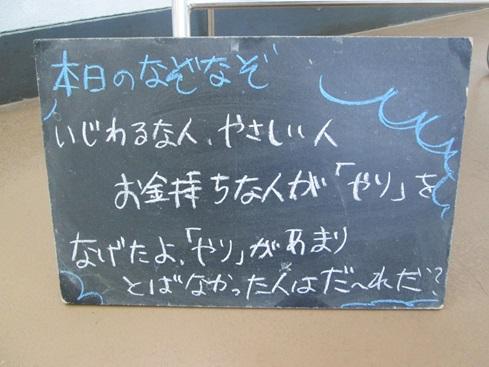 本日のなぞなぞ
いじわるな人、やさしい人
お金持ちな人が「やり」を
なげたよ、「やり」があまり
とばなかった人はだ〜れだ?